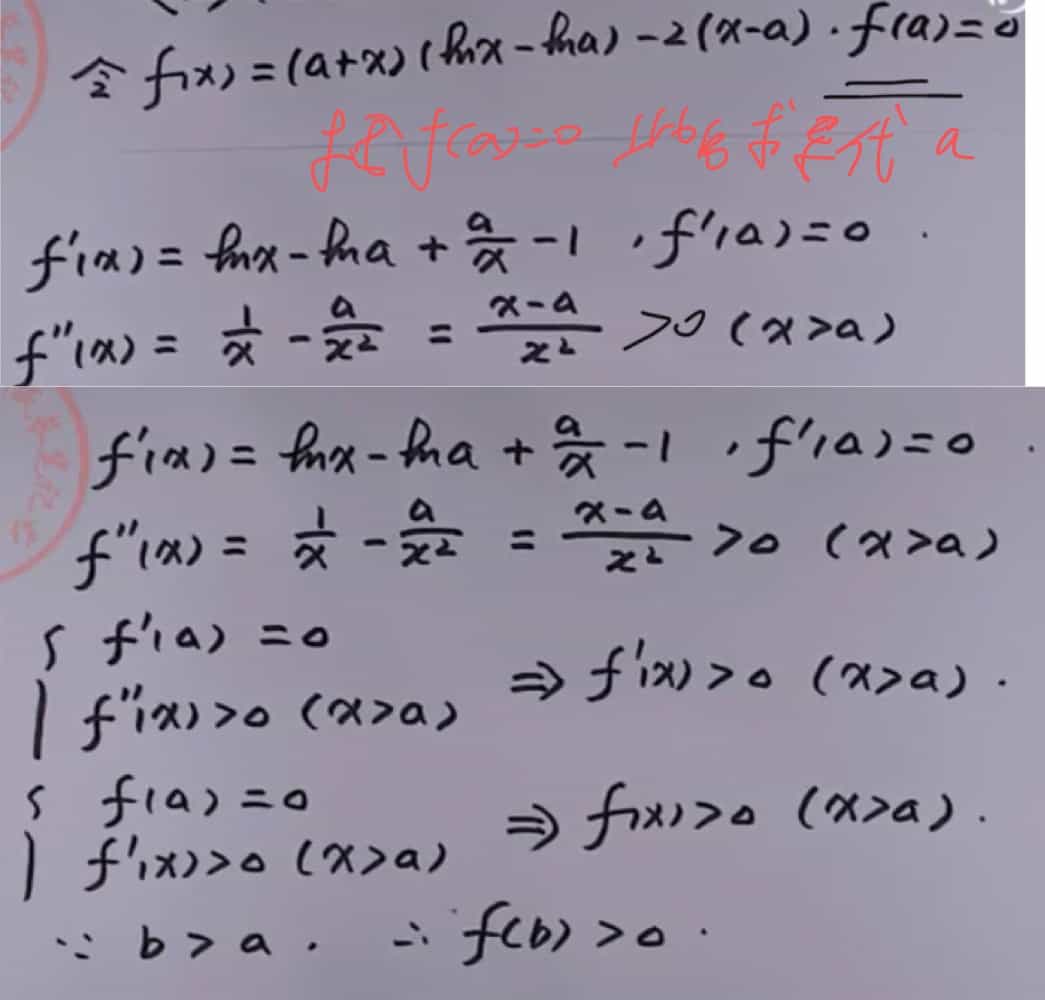 令 f(x) = (a+x)(lnx - lna) - 2(x-a). f(a)=0
f(a)=0 代 a
f'(x) = lnx - lna + a/x - 1 , f'(a) = 0 .
f''(x) = 1/x - a/x² = x-a/x² >0 (x>a)
f'(x) = lnx - lna + a/x - 1 , f'(a) = 0 .
f''(x) = 1/x - a/x² = x-a/x² > 0 (x>a)
{ f'(a) = 0
f''(x) > 0 (x>a) ⇒ f'(x) > 0 (x>a) .
{ f(a) = 0
f'(x) > 0 (x>a) ⇒ f(x) > 0 (x>a) .
∵ b > a . ∴ f(b) > 0 .